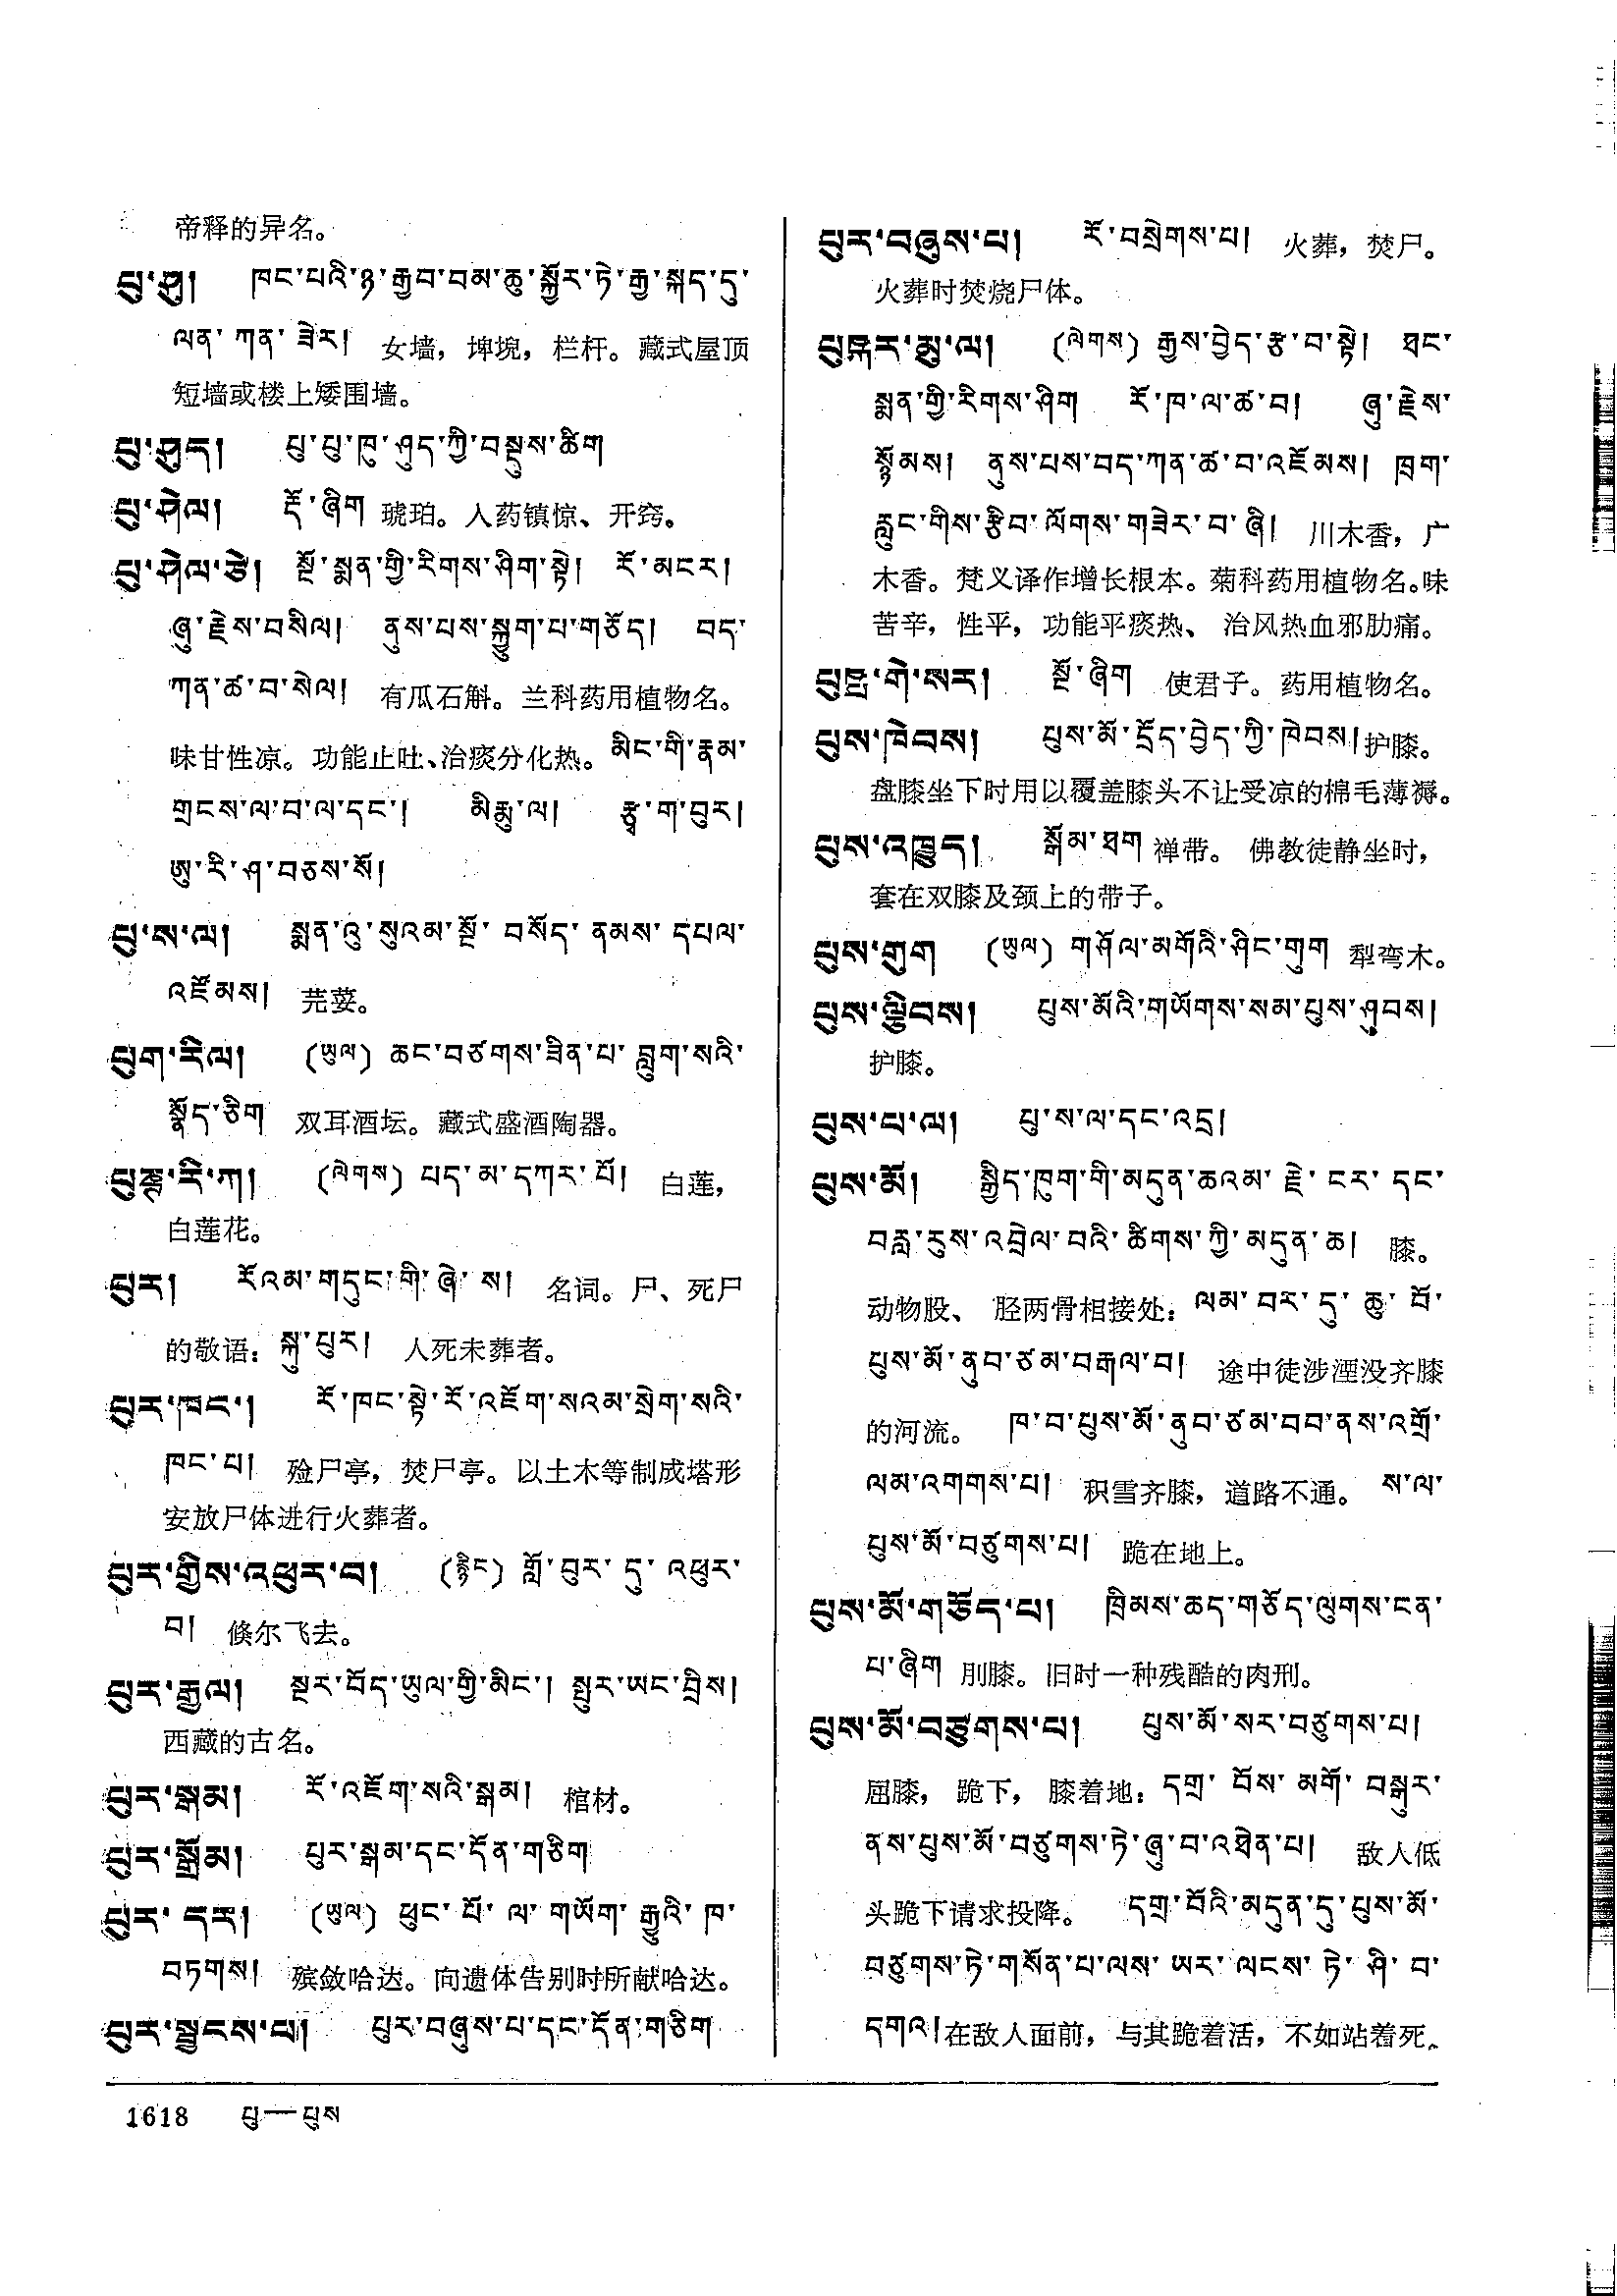 帝释的异名。
པུ་ཤུ། ཁང་པའི་ཉ་རྒྱབ་བམ་ཆུ་སྐྱོར་ཏེ་རྒྱ་སྐད་དུ་
ལན་ཀན་ཟེར། 女墙，埤堄，栏杆。藏式屋顶
短墙或楼上矮围墙。
པུ་ཤུད། པུ་པུ་ཁུ་ཤུད་ཀྱི་བསྡུས་ཚིག
པུ་ཤེལ། རྡོ་ཞིག 琥珀。入药镇惊、开窍。
པུ་ཤེལ་རྩེ། སྔོ་སྨན་གྱི་རིགས་ཤིག་སྟེ། རོ་མངར།
ཞུ་རྗེས་བསིལ། ནུས་པས་སྐྱུག་པ་གཅོད། བད་
ཀན་ཚ་བ་སེལ། 有瓜石斛。兰科药用植物名。
味甘性凉。功能止吐、治痰分化热。མིང་གི་རྣམ་
གྲངས་ལ་བ་ལ་དང་། མི་མྱུ་ལ། རྩྭ་ག་བུར།
ཨུ་རི་ཤ་བཅས་སོ།
པུ་ས་ལ། སྨན་འུ་སུའམ་སྔོ་བསོད་ནམས་དཔལ་
འཛོམས། 芫荽。
པུག་རིལ། (ཡུལ) ཆང་བཙགས་ཟིན་པ་བླུག་སའི་
སྣོད་ཅིག 双耳酒坛。藏式盛酒陶器。
པུཎྜ་རི་ཀ། (ལེགས) པད་མ་དཀར་པོ། 白莲，
白莲花。
པུར། རོའམ་གདུང་གི་ཞེ་ས། 名词。尸、死尸
的敬语：སྐུ་པུར། 人死未葬者。
པུར་ཁང་། རོ་ཁང་སྟེ་རོ་འཇོག་སའམ་སྲེག་སའི་
ཁང་པ། 殓尸亭，焚尸亭。以土木等制成塔形
安放尸体进行火葬者。
པུར་གྱིས་འཕུར་བ། (རྙིང) གློ་བུར་དུ་འཕུར་
བ། 倏尔飞去。
པུར་རྒྱལ། སྔར་བོད་ཡུལ་གྱི་མིང་། སྤུར་ཡང་བྲིས།
西藏的古名。
པུར་སྒམ། རོ་འཇོག་སའི་སྒམ། 棺材。
པུར་སྒྲོམ། པུར་སྒམ་དང་དོན་གཅིག
པུར་དར། (ཡུལ) ཕུང་པོ་ལ་གཡོག་རྒྱུའི་ཁ་
བཏགས། 殡敛哈达。向遗体告别时所献哈达。
པུར་སྦྱངས་པ། པུར་བཞུས་པ་དང་དོན་གཅིག
པུར་བཞུས་པ། རོ་བསྲེགས་པ། 火葬，焚尸。
火葬时焚烧尸体。
པུཥྐར་མཱུ་ལ། (ལེགས) རྒྱས་བྱེད་རྩ་བ་སྟེ། ཐང་
སྨན་གྱི་རིགས་ཤིག རོ་ཁ་ལ་ཚ་བ། ཞུ་རྗེས་
སྙོམས། ནུས་པས་བད་ཀན་ཚ་བ་འཇོམས། ཁྲག་
རླུང་གིས་རྩིབ་ལོགས་གཟེར་བ་ཞི། 川木香，广
木香。梵义译作增长根本。菊科药用植物名。味
苦辛，性平，功能平痰热、治风热血邪肋痛。
གེ་སར། སྔོ་ཞིག 使君子。药用植物名。
པུས་ཁེབས། པུས་མོ་དྲོད་བྱེད་ཀྱི་ཁེབས།护膝。
盘膝坐下时用以覆盖膝头不让受凉的棉毛薄褥。
པུས་འཁྱུད། སྒོམ་ཐག 禅带。佛教徒静坐时，
套在双膝及颈上的带子。
པུས་གུག (ཡུལ) གཤོལ་མགོའི་ཤིང་གུག 犁弯木。
པུས་ལྕིབས། པུས་མོའི་གཡོགས་སམ་པུས་ཤུབས།
护膝。
པུས་པ་ལ། པུ་ས་ལ་དང་འདྲ།
པུས་མོ། སྒྱིད་ཁུག་གི་མདུན་ཆའམ་རྗེ་ངར་དང་
བརླ་རུས་འབྲེལ་བའི་ཚིགས་ཀྱི་མདུན་ཆ། 膝。
动物股、胫两骨相接处：ལམ་བར་དུ་ཆུ་བོ་
པུས་མོ་ནུབ་ཙམ་བརྒལ་བ། 途中徒涉湮没齐膝
的河流。 ཁ་བ་པུས་མོ་ནུབ་ཙམ་བབ་ནས་འགྲོ་
ལམ་འགགས་པ། 积雪齐膝，道路不通。 ས་ལ་
པུས་མོ་བཙུགས་པ། 跪在地上。
པུས་མོ་གཅོད་པ། ཁྲིམས་ཆད་གཅོད་ལུགས་ངན་
པ་ཞིག 刖膝。旧时一种残酷的肉刑。
པུས་མོ་བཙུགས་པ། པུས་མོ་སར་བཙུགས་པ།
屈膝，跪下，膝着地：དགྲ་བོས་མགོ་བསྒུར་
ནས་པུས་མོ་བཙུགས་ཏེ་ཞུ་བ་འཐེན་པ། 敌人低
头跪下请求投降。 དགྲ་བོའི་མདུན་དུ་པུས་མོ་
བཙུགས་ཏེ་གསོན་པ་ལས་ཡར་ལངས་ཏེ་ཤི་བ་
དགའ།在敌人面前，与其跪着活，不如站着死。
1618 པུ—པུས